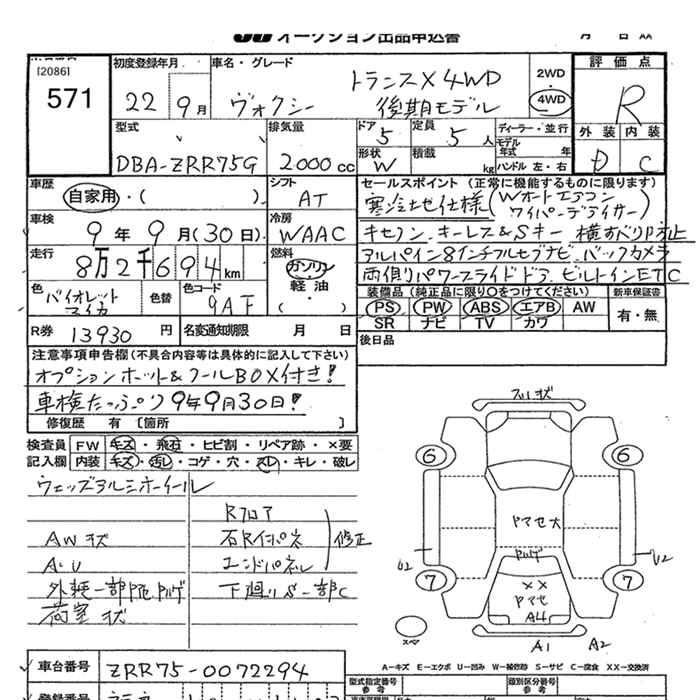 JU オークション出品申込書
[2086]
571
初度登録年月
22年9月
車名・グレード
ヴォクシー
トランスX 4WD
後期モデル
2WD
4WD
評価点
R
外装 内装
D C
型式
DBA-ZRR75G
排気量
2000cc
ドア
5
定員
5人
形状
W
積載
kg
ディーラー・並行
モデル年式 年
ハンドル 左・右
車歴
自家用・( )
シフト
AT
車検
9年9月(30日)
冷房
WAAC
走行
8万2千694km
燃料
ガソリン
軽油
・( )
色
バイオレットマイカ
色替
色コード
9AF
R券 13930円
名変通知期限 月 日
セールスポイント(正常に機能するものに限ります)
寒冷地仕様(Wオートエアコン
ワイパーデアイサー)
キセノン キーレス&Sキー 横すべり防止
アルパイン8インチフルセグナビ バックカメラ
両側パワースライドドア ビルトインETC
装備品(純正品に限り○をつけてください)
PS PW ABS エアB AW
SR ナビ TV カワ
新車保証書
有・無
後日品
注意事項申告欄(不具合内容等は具体的に記入して下さい)
オプションホット&クールBOX付き!
車検たっぷり9年9月30日!
修復歴 有 [箇所 ]
検査員 FW キズ・飛石・ヒビ割・リペア跡・×要
記入欄 内装 キズ・汚レ・コゲ・穴・スレ・キレ・破レ
ウェッズアルミホイール
Rフロア
AWキズ
石Rインパネ
修正
AU
エンドパネル
外装一部
下廻りS一部C
荷室キズ
6
6
7
7
ヤマセ大
××
ヤマセ
A4
U2
U2
A1
A2
スペア
A-キズ E-エクボ U-凹み W-補修跡 S-サビ C-腐食 XX-交換済
車台番号 ZRR75-0072294
型式指定番号
参考
類別区分番号
参考
登録番号